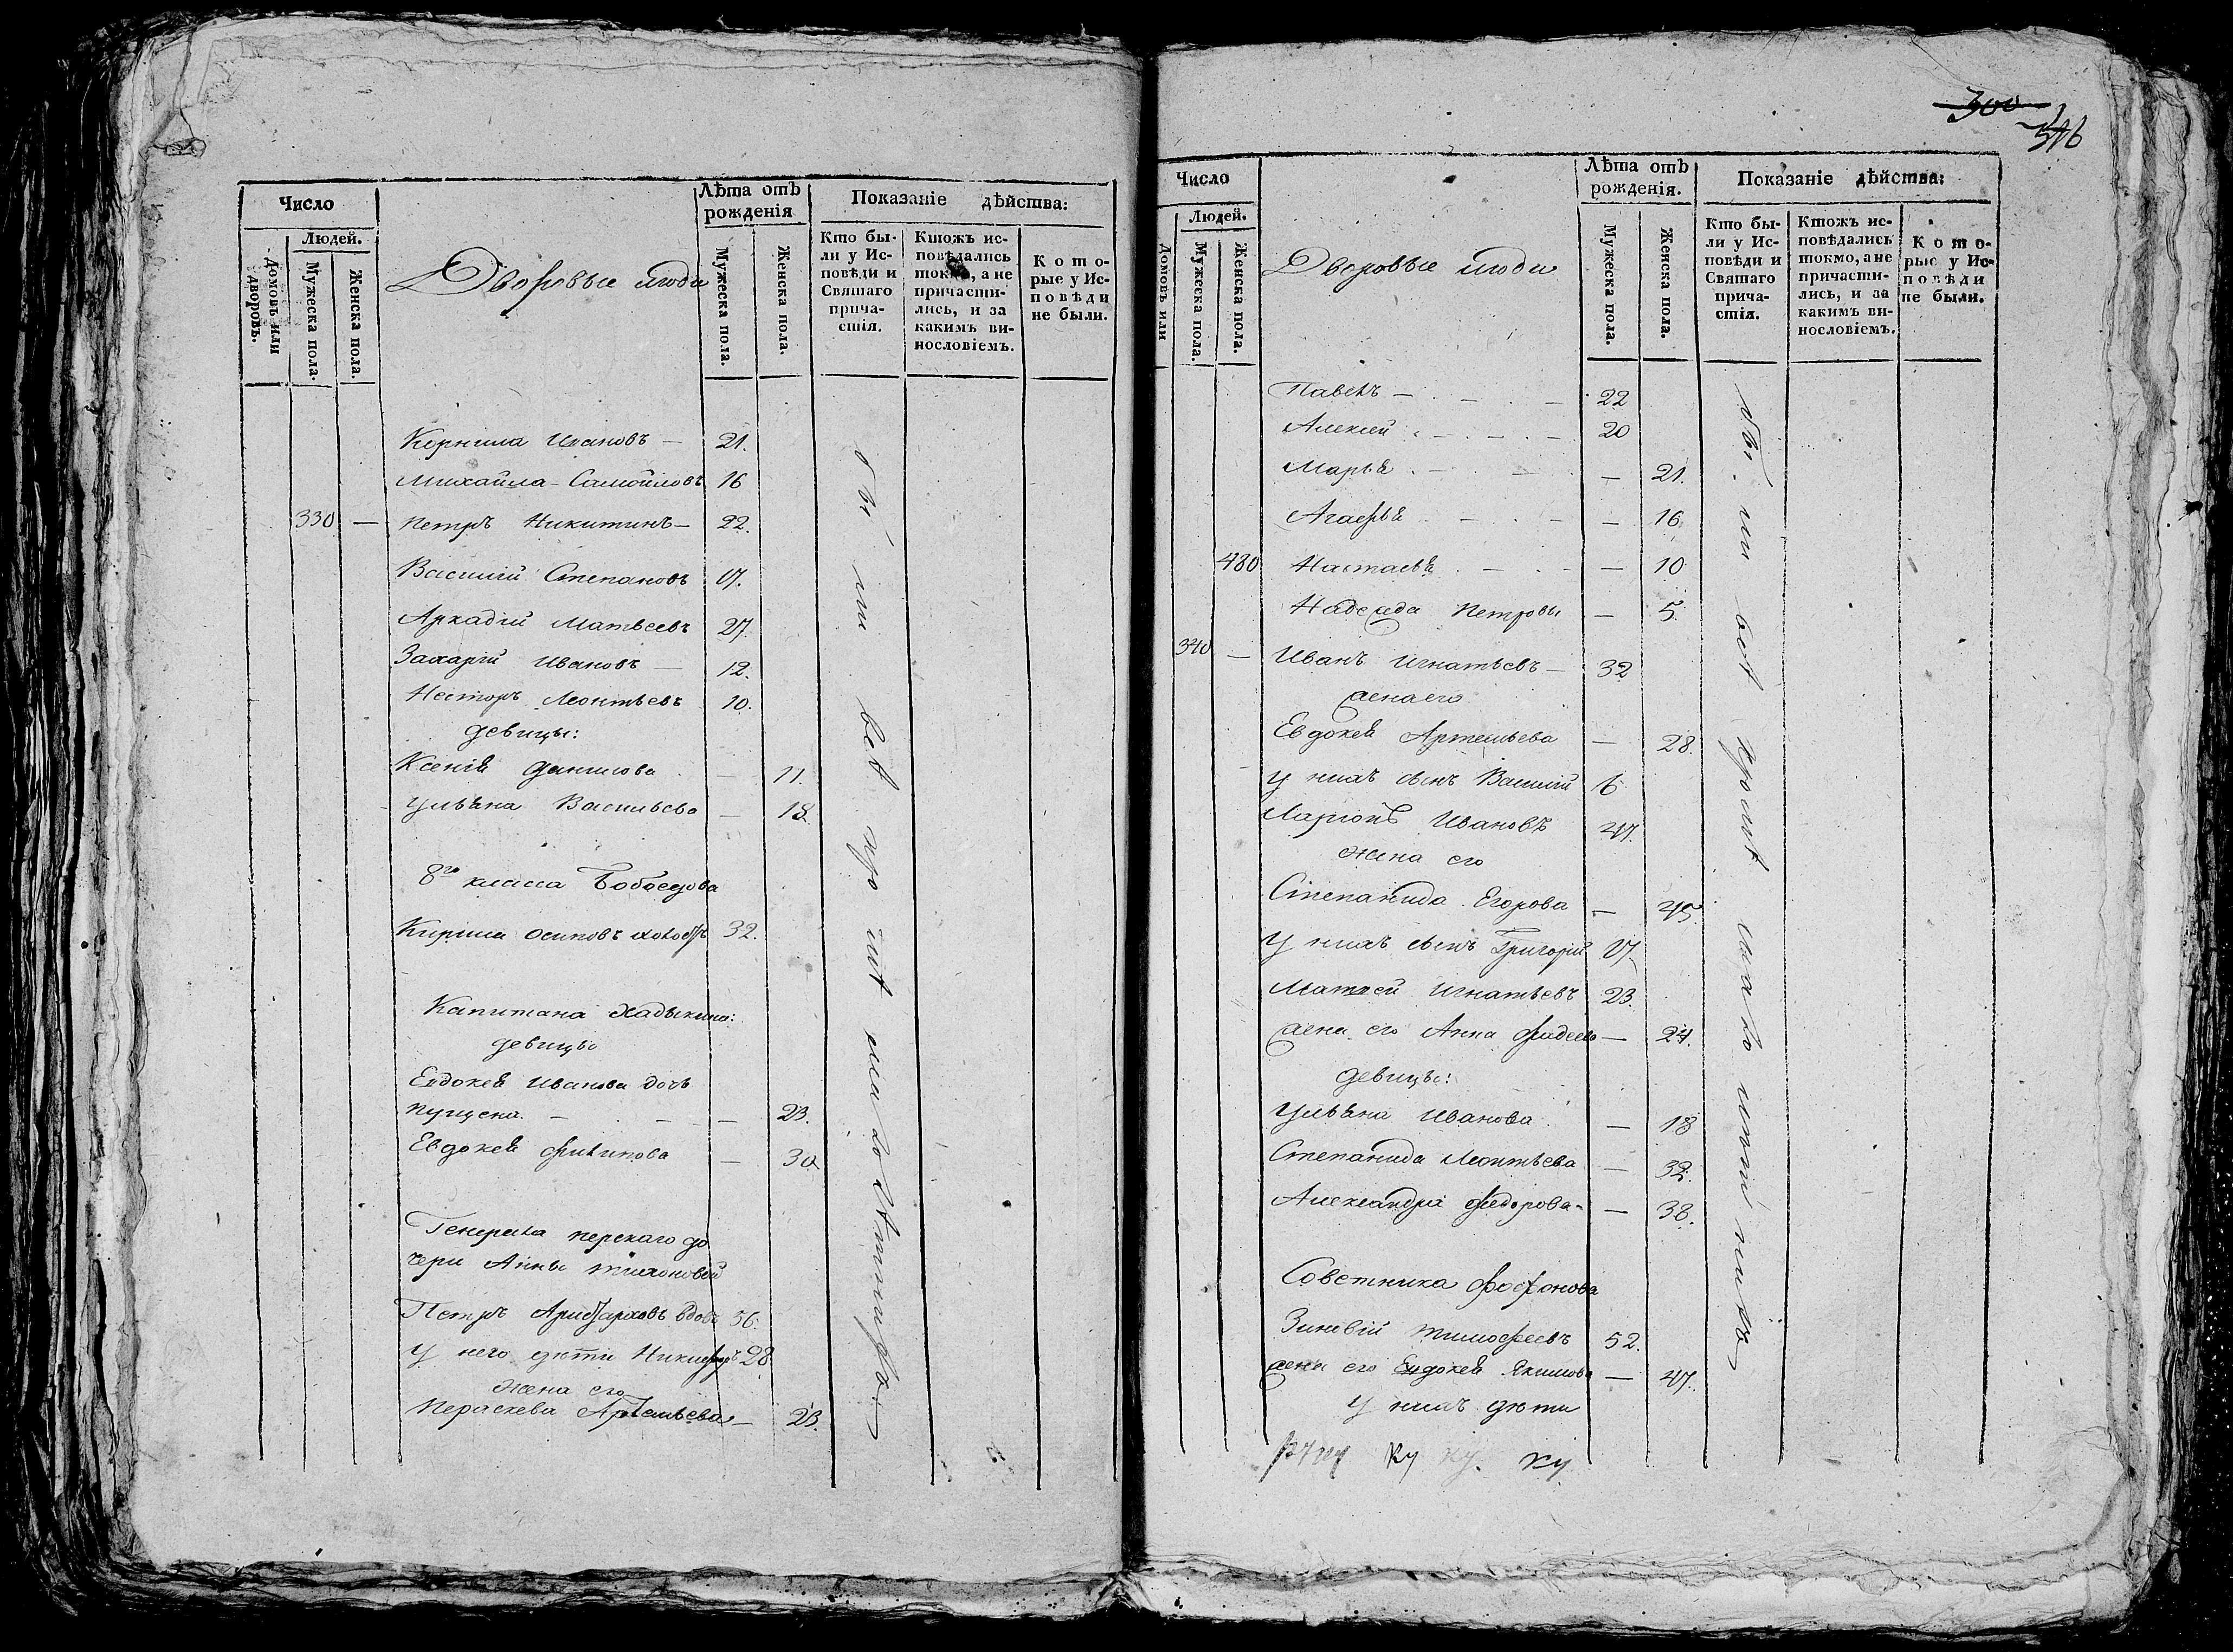 Число
Людей.
Домовъ или дворовъ.
Мужеска пола.
Женска пола.
Дворовые люди
Лѣта отъ рожденія
Мужеска пола.
Женска пола.
Показаніе дѣйства:
Кто были у Исповѣди и Святаго причастія.
Ктожъ исповѣдались токмо, а не причастились, и за какимъ винословіемъ.
Которые у Исповѣди не были.
Корнила Ивановъ — 21.
Михайла Самойловъ 16
330 — Петръ Никитинъ — 22.
Василій Степановъ 17.
Аркадій Матвеевъ 27.
Захарій Ивановъ — 12.
Несторъ Леонтьевъ 10.
девицы:
Ксенія Данилова — 11.
Ульяна Васильева — 18.
8го класса Бобоедова
Кирила Осиповъ холостъ 32.
Капитана Хадыкина:
девицы
Евдокея Иванова дочь
пущена. — — 23.
Евдокея Филипова — 30
Генерала перскаго до
чери Анны Тихоновой
Петръ Аристарховъ вдовъ 56.
У него дѣти Никифоръ 28
жена его
Параскева Артемьева — 23.
300
346
Число
Людей.
Домовъ или
Мужеска пола.
Женска пола.
Дворовые люди
Лѣта отъ рожденія.
Мужеска пола.
Женска пола.
Показаніе дѣйства:
Кто были у Исповѣди и Святаго причастія.
Ктожъ исповѣдались токмо, а не причастились, и за какимъ винословіемъ.
Которые у Исповѣди не были.
Павелъ — 22
Алексей — 20
Марья — 21.
Агафья — 16
480 Настасья — 10
Надежда Петровы — 5.
340 — Иванъ Игнатьевъ — 32
жена его
Евдокея Артемьева — 28.
У нихъ сынъ Василий 6
Ларіонъ Ивановъ 47.
жена его
Степанида Егорова — 45.
У нихъ сынъ Григорій 17
Матвей Игнатьевъ 23.
жена его Анна Фадеева — 24.
девицы:
Ульяна Иванова — 18
Степанида Леонтьева — 32.
Александра Федорова — 38.
Советника Фофонова
Зиновій Тимофеевъ 52.
жена его Евдокея Якимова — 47.
У нихъ дѣти
ку ку. ку
были всѣ кромѣ малолѣтнихъ
были всѣ кромѣ